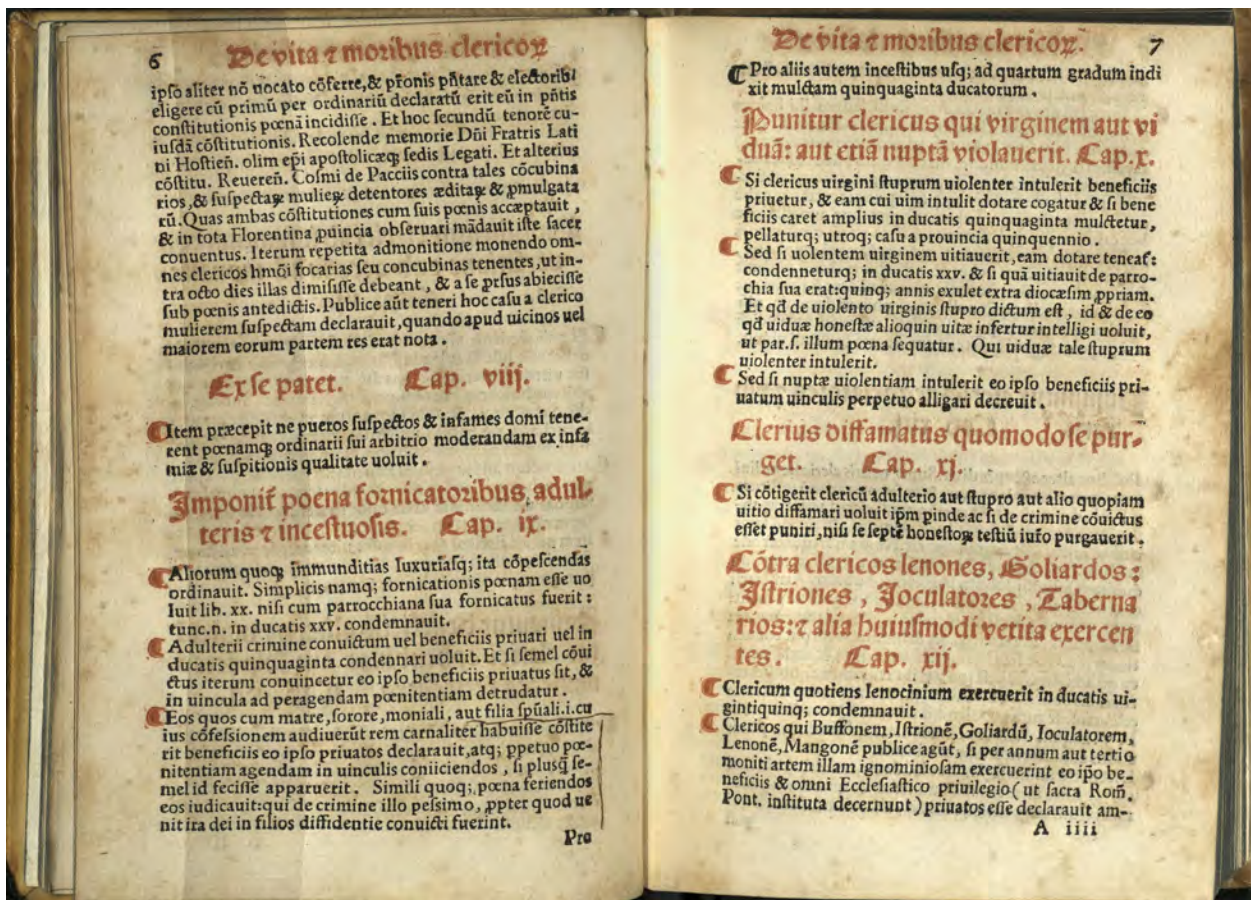 6 De vita ⁊ moribus clericoꝝ
ipso aliter nõ uocato cõferre,& pr̃onis pñtare & electorib⁹
eligere cũ primũ per ordinariũ declaratũ erit eũ in pñtis
constitutionis pœnã incidisse. Et hoc secundũ tenorẽ cu-
iusdã cõstitutionis. Recolende memorie Dñi Fratris Lati
ni Hostieñ. olim ep̃i apostolicæq; sedis Legati. Et alterius
cõstitu. Reuereñ. Cosmi de Pacciis contra tales cõcubina
rios,& suspectaꝝ mulieꝝ detentores æditaꝝ & ꝓmulgata
rũ. Quas ambas cõstitutiones cum suis pœnis accæptauit,
& in tota Florentina ꝓuincia obseruari mãdauit iste sacer
conuentus. Iterum repetita admonitione monendo om-
nes clericos hmõi focarias seu concubinas tenentes,ut in-
tra octo dies illas dimisisse debeant, & a se ꝓrsus abiecisse
sub pœnis antedictis. Publice aũt teneri hoc casu a clerico
mulierem suspectam declarauit,quando apud uicinos uel
maiorem eorum partem res erat nota.
Ex se patet. Cap. viij.
Item præcepit ne pueros suspectos & infames domi tene-
rent pœnamq; ordinarii sui arbitrio moderandam ex infa
miæ & suspitionis qualitate uoluit.
Imponit᷑ poena fornicatoribus, adul-
teris ⁊ incestuosis. Cap. ix.
Aliorum quoq; immunditias luxuriasq; ita cõpescendas
ordinauit. Simplicis namq; fornicationis pœnam esse uo
luit lib. xx. nisi cum parrocchiana sua fornicatus fuerit:
tunc.n. in ducatis xxv. condemnauit.
Adulterii crimine conuictum uel beneficiis priuari uel in
ducatis quinquaginta condennari uoluit. Et si semel cõui
ctus iterum conuincetur eo ipso beneficiis priuatus sit, &
in uincula ad peragendam pœnitentiam detrudatur.
Eos quos cum matre,sorore,moniali, aut filia sp̃uali.i.cu
ius cõfessionem audiuerũt rem carnaliter habuisse cõstite
rit beneficiis eo ipso priuatos declarauit,atq; ꝑpetuo pœ-
nitentiam agendam in uinculis coniiciendos, si plusq̃ se-
mel id fecisse apparuerit. Simili quoq; pœna feriendos
eos iudicauit:qui de crimine illo pessimo, ꝓpter quod ue
nit ira dei in filios diffidentie conuicti fuerint.
Pro
De vita ⁊ moribus clericoꝝ. 7
Pro aliis autem incestibus usq; ad quartum gradum indi
xit mulctam quinquaginta ducatorum.
Punitur clericus qui virginem aut vi
duã: aut etiã nuptã violauerit. Cap.x.
Si clericus uirgini stuprum uiolenter intulerit beneficiis
priuetur, & eam cui uim intulit dotare cogatur & si bene
ficiis caret amplius in ducatis quinquaginta mulctetur,
pellaturq; utroq; casu a prouincia quinquennio.
Sed si uolentem uirginem uitiauerit,eam dotare teneat᷑:
condenneturq; in ducatis xxv. & si quã uitiauit de parro-
chia sua erat:quinq; annis exulet extra diocæsim ꝓpriam.
Et qđ de uiolento uirginis stupro dictum est, id & de eo
qđ uiduæ honestæ alioquin uitæ infertur intelligi uoluit,
ut par.s. illum pœna sequatur. Qui uiduæ tale stuprum
uiolenter intulerit.
Sed si nuptæ uiolentiam intulerit eo ipso beneficiis pri-
uatum uinculis perpetuo alligari decreuit.
Clerius diffamatus quomodo se pur-
get. Cap. xj.
Si cõtigerit clericũ adulterio aut stupro aut alio quopiam
uitio diffamari uoluit ip̃m pinde ac si de crimine cõuictus
esset puniri,nisi se septẽ honestoꝝ testiũ iuro purgauerit.
Cõtra clericos lenones, Goliardos:
Istriones, Joculatores, Taberna
rios:⁊ alia huiusmodi vetita exercen
tes. Cap. xij.
Clericum quotiens lenocinium exercuerit in ducatis ui-
gintiquinq; condemnauit.
Clericos qui Buffonem, Istrionẽ,Goliardũ, Ioculatorem,
Lenonẽ,Mangonẽ publice agũt, si per annum aut tertio
moniti artem illam ignominiosam exercuerint eo ip̃o be-
neficiis & omni Ecclesiastico priuilegio (ut sacra Rom̃.
Pont. instituta decernunt) priuatos esse declarauit am-
A iiii